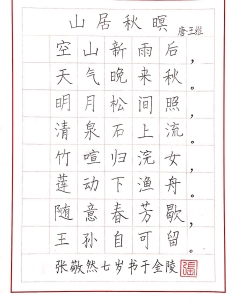 山居秋暝
唐·王维
空山新雨后，
天气晚来秋。
明月松间照，
清泉石上流。
竹喧归浣女，
莲动下渔舟。
随意春芳歇，
王孙自可留。
张敬然七岁书于金陵
張